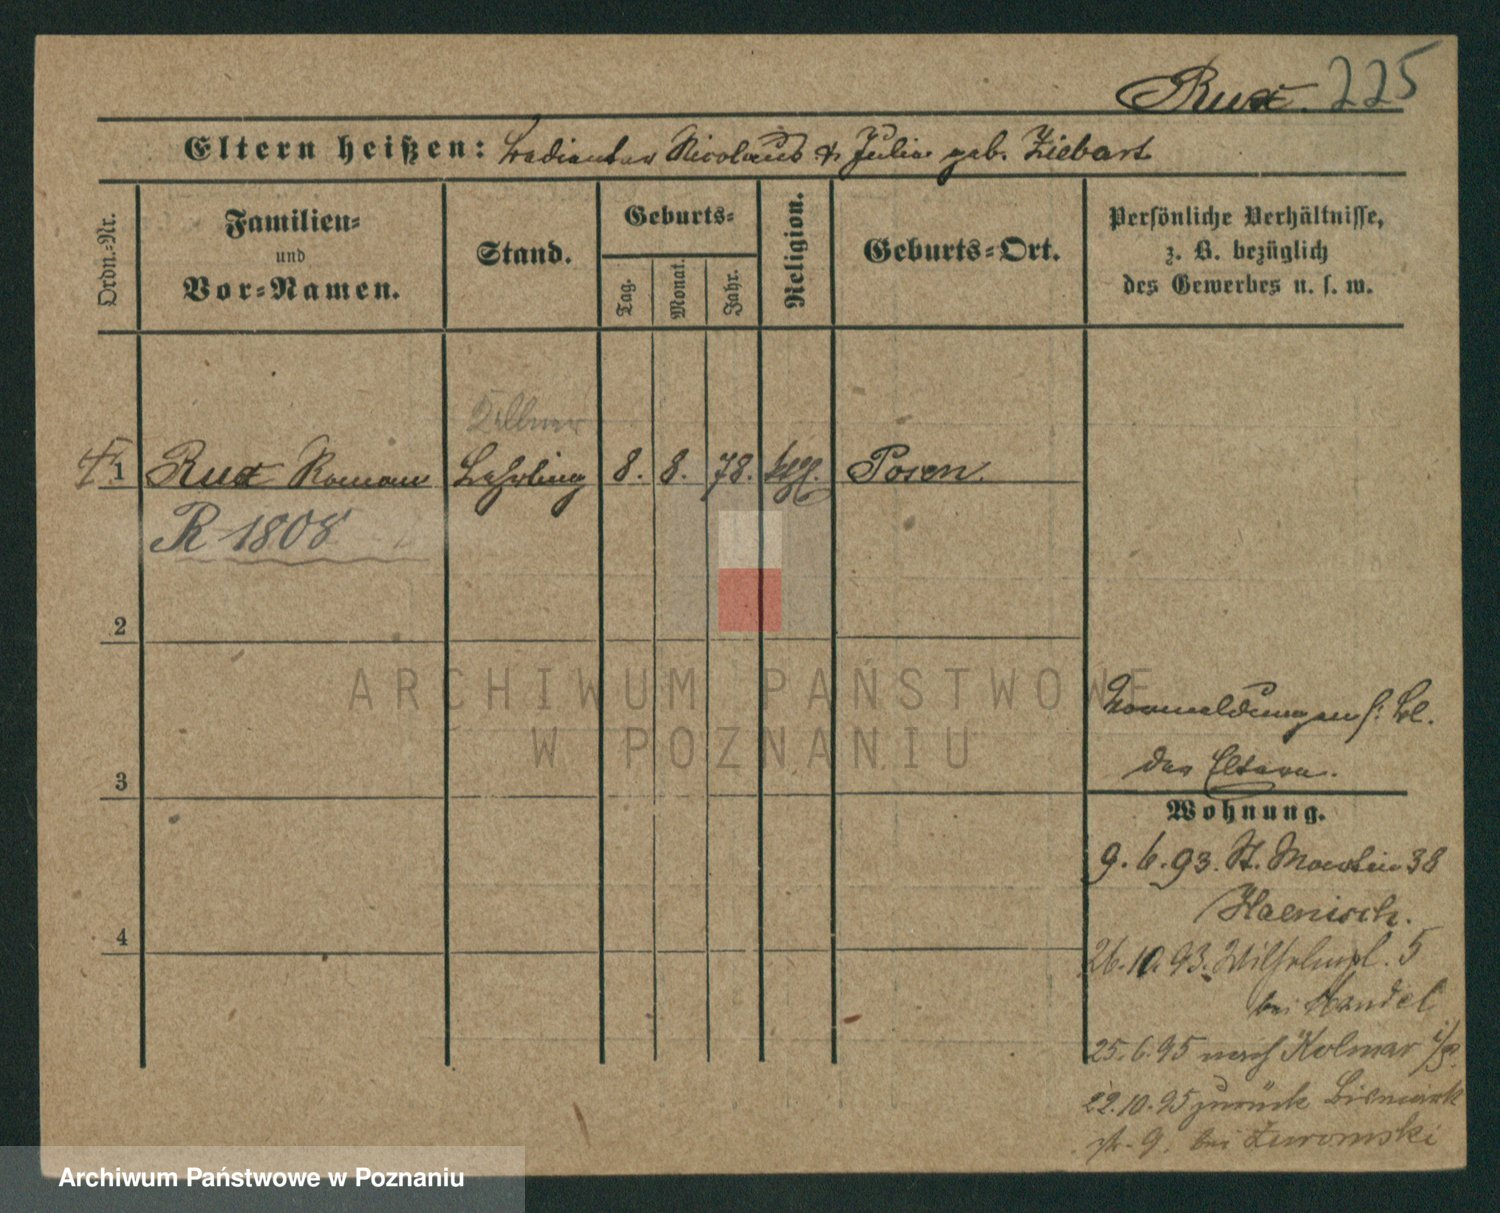 Rux. 225
Eltern heißen: Nicolaus & Julia geb. Ziebart
Ordn.-Nr.
Familien-
und
Vor-Namen.
Stand.
Geburts-
Tag.
Monat.
Jahr.
Religion.
Geburts-Ort.
Persönliche Verhältnisse,
z. B. bezüglich
des Gewerbes u. s. w.
Kellner
1 Rux Roman Lehrling 8. 8. 78. kth. Posen.
R 1808
2
ARCHIWUM PAŃSTWOWE
W POZNANIU
3
der Eltern.
4
Wohnung.
9. 6. 93. St. Martin 38
Haenisch.
26. 10. 93. Wilhelmpl. 5
bei Handel
25. 6. 95 nach Kolmar i/P.
22. 10. 95 zurück Bismark
str. 9. bei Zuromski
Archiwum Państwowe w Poznaniu